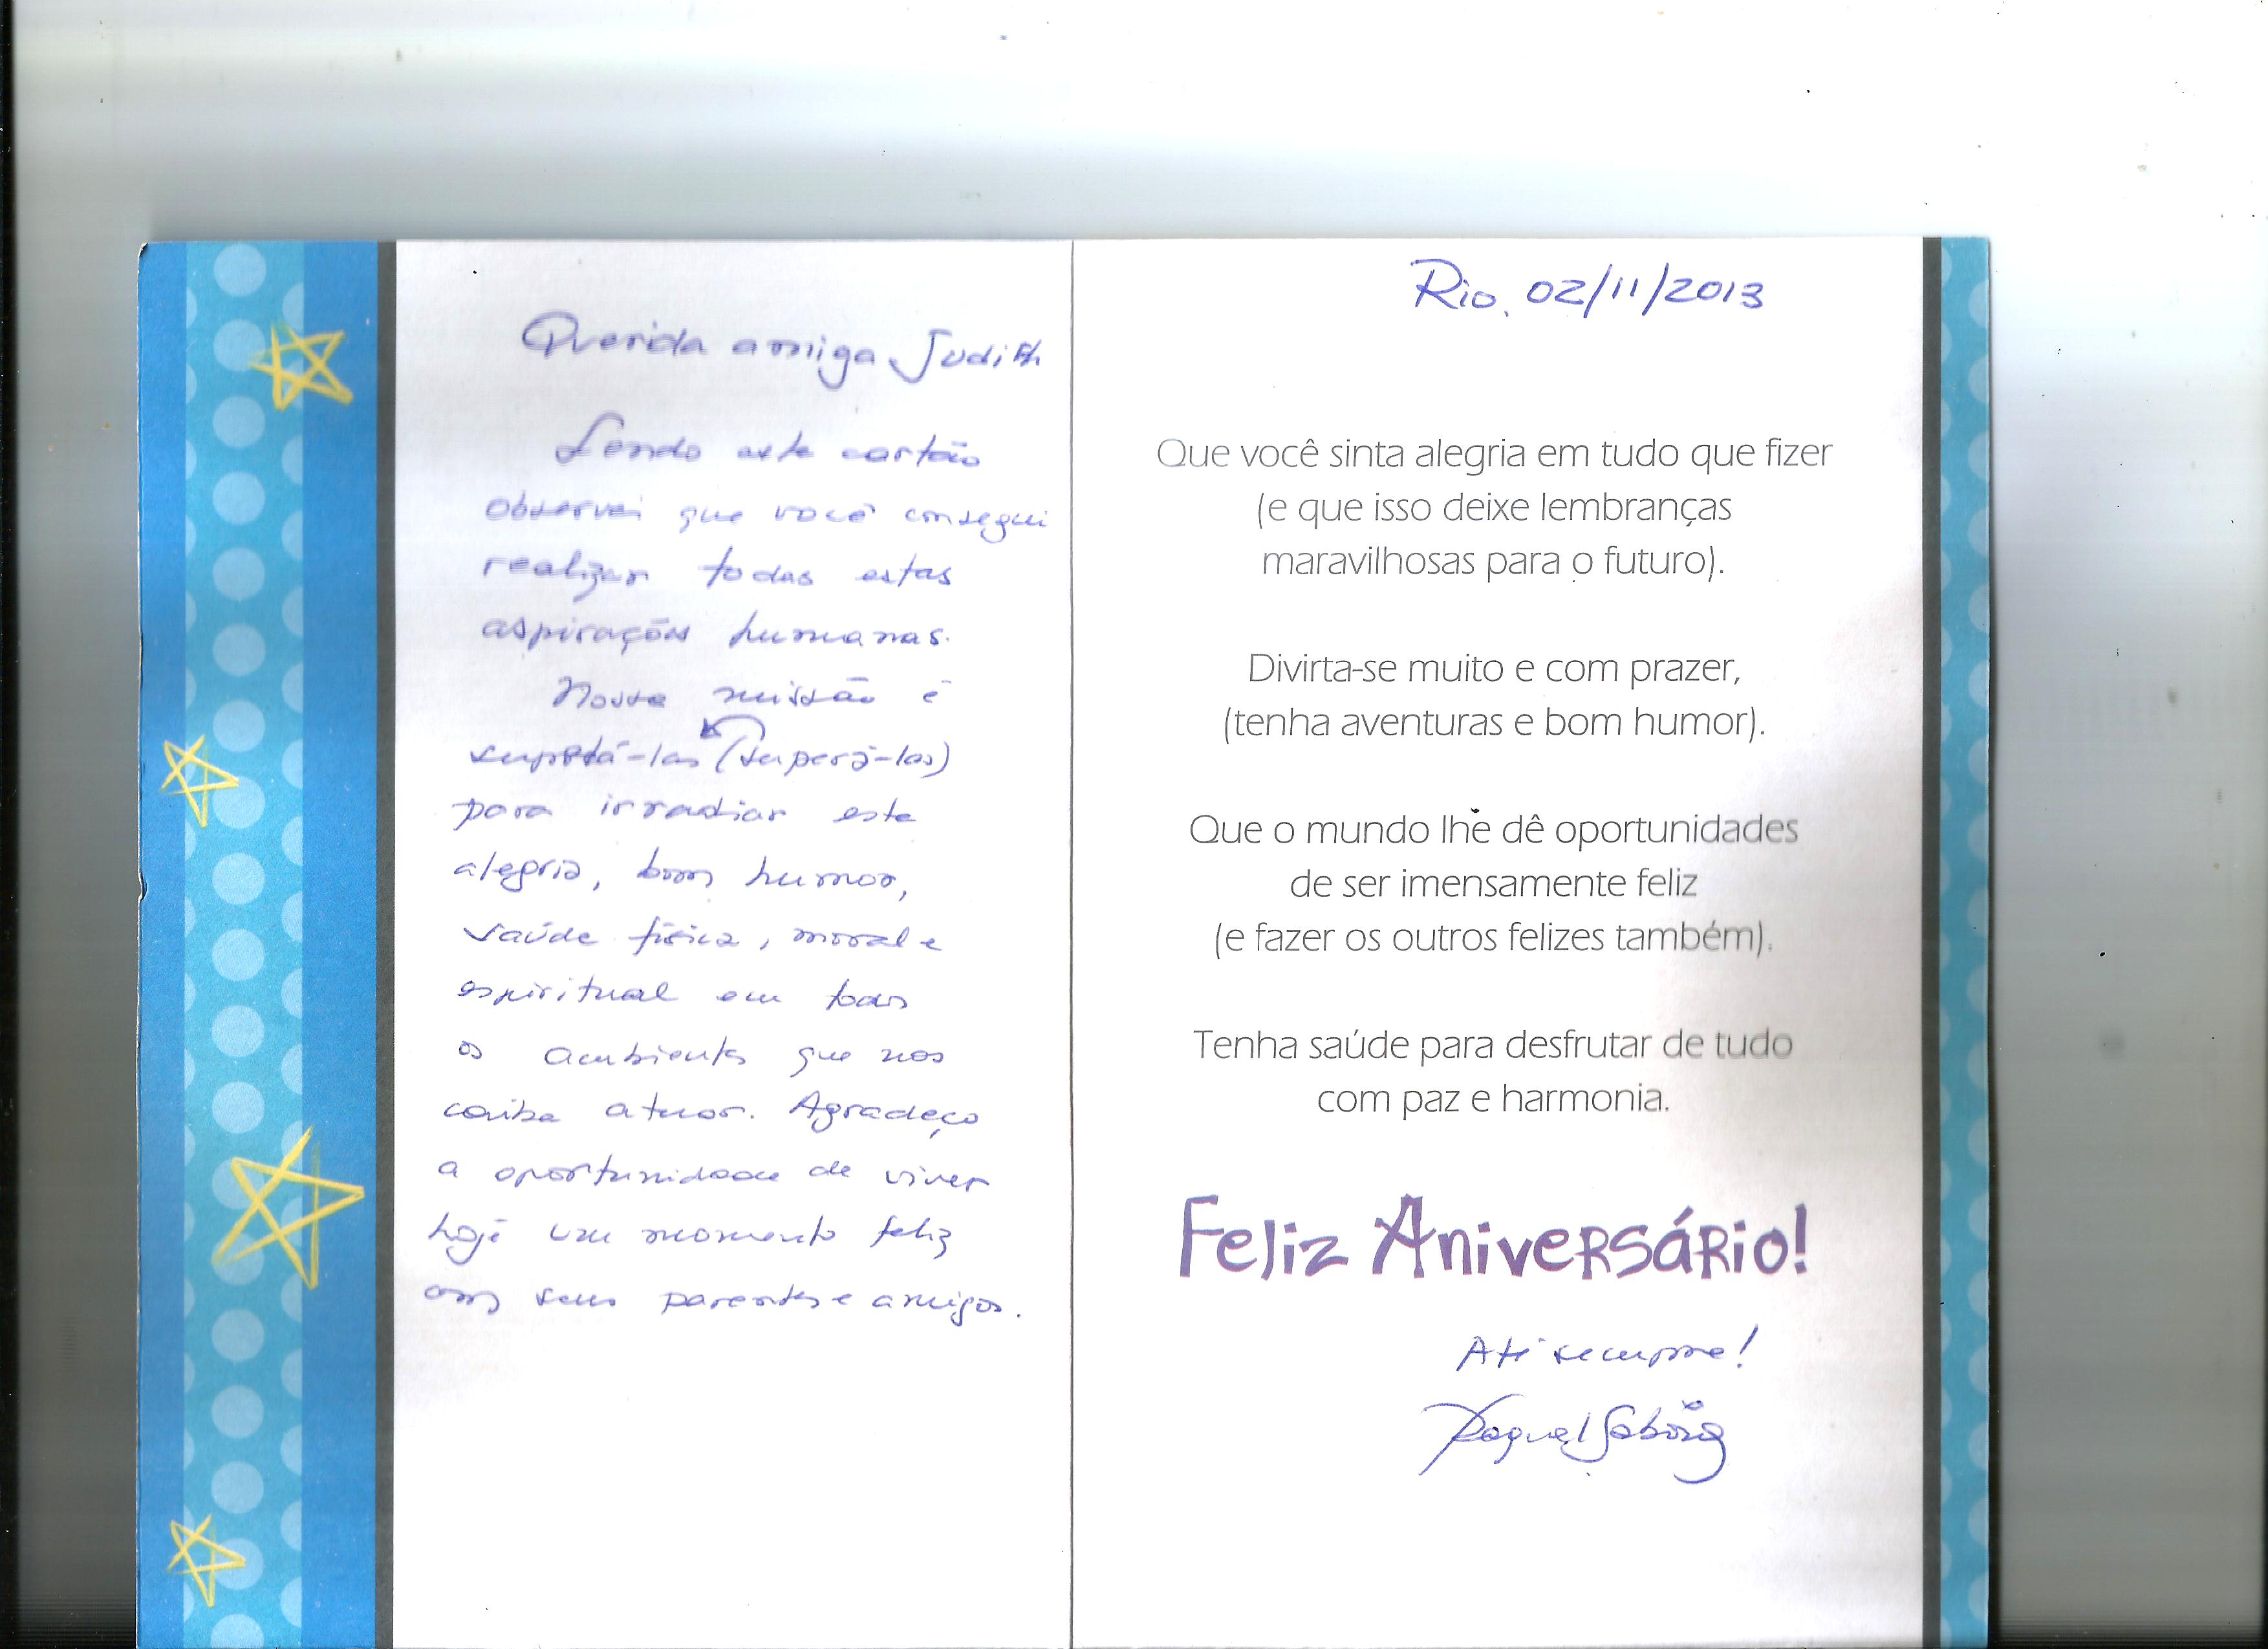 Querida amiga Judith
Lendo este cartão
observei que você consegui
realizar todas estas
aspirações humanas.
Nossa missão é
(superá-las)
para irradiar esta
alegria, bom humor,
saúde física, moral e
espiritual em todos
os ambientes que nos
caiba atuar. Agradeço
a oportunidade de viver
hoje um momento feliz
com seus parentes e amigos.
Rio, 02/11/2013
Que você sinta alegria em tudo que fizer
(e que isso deixe lembranças
maravilhosas para o futuro).
Divirta-se muito e com prazer,
(tenha aventuras e bom humor).
Que o mundo lhe dê oportunidades
de ser imensamente feliz
(e fazer os outros felizes também).
Tenha saúde para desfrutar de tudo
com paz e harmonia.
Feliz Aniversário!
Até sempre!
Raquel